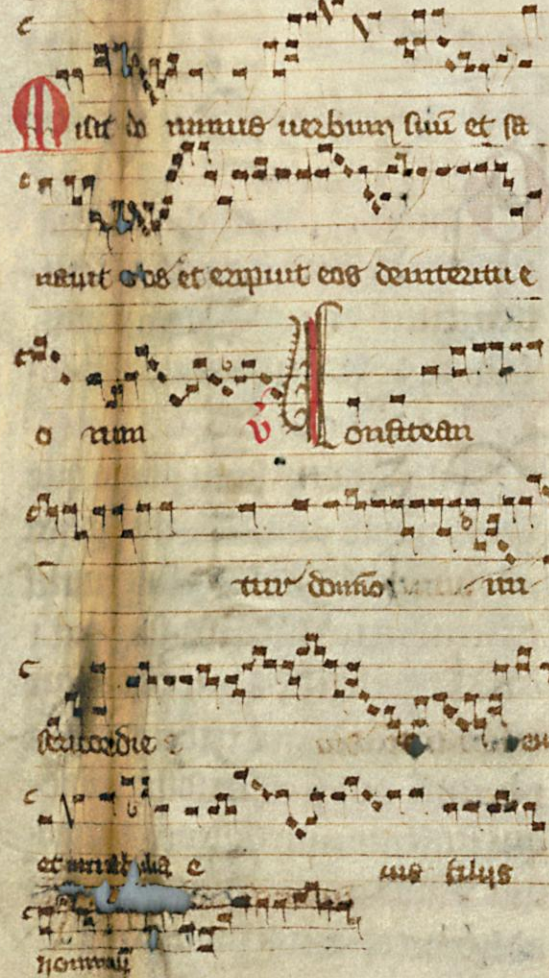 Misit do minus uerbum suū et sa
nauit eos et eripuit eos deinteritu e
o rum ℣ Confitean
tur domīo mi
sericordie e
et mirabilia e ius filijs
hominū